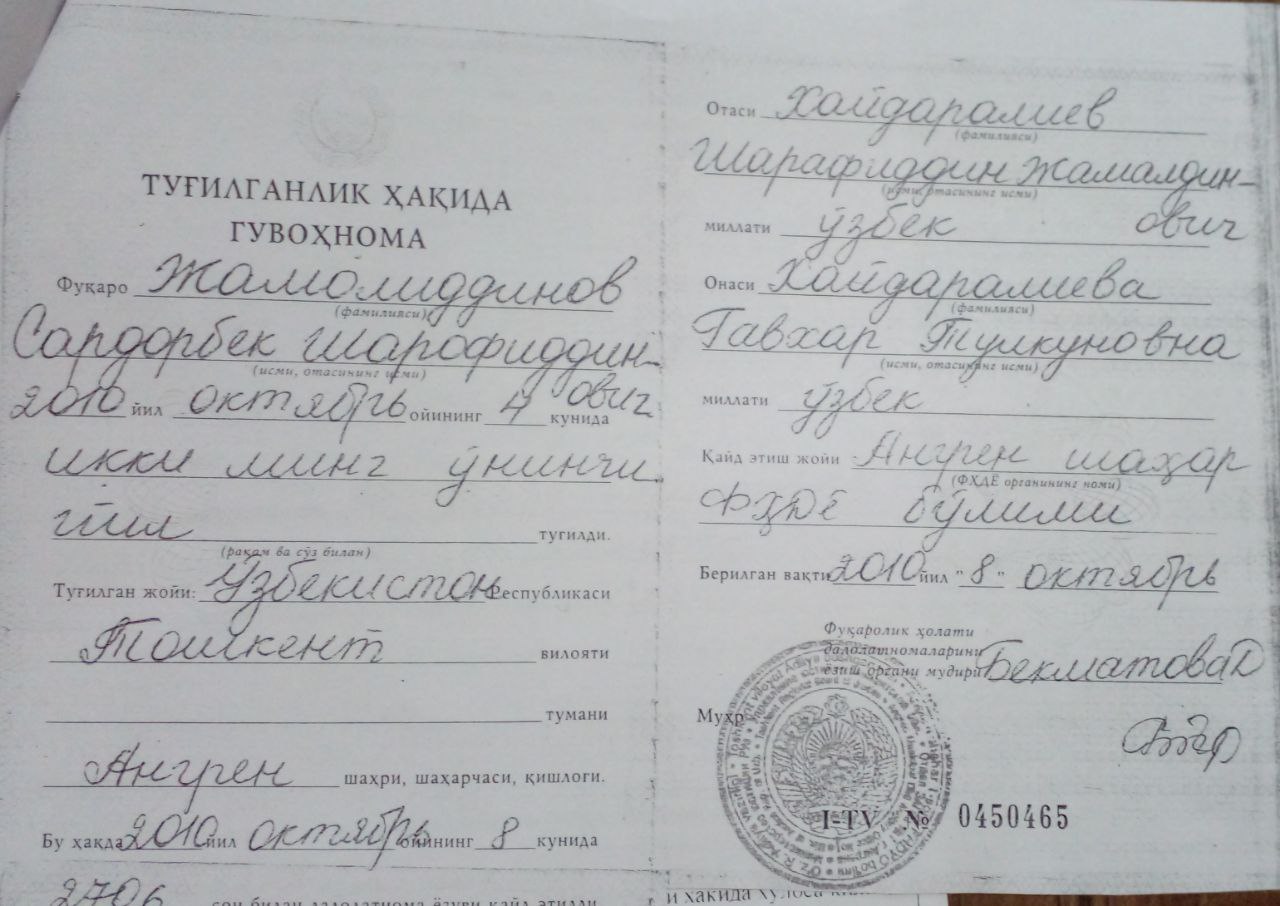 ТУҒИЛГАНЛИК ҲАҚИДА
ГУВОҲНОМА
Фуқаро Жамолиддинов
(фамилияси)
Сардорбек Шарофиддин-
(исми, отасининг исми)
ович
2010 йил октябрь ойининг 4 кунида
икки минг ўнинчи
йил туғилди.
(рақам ва сўз билан)
Туғилган жойи: Ўзбекистон Республикаси
Тошкент вилояти
тумани
Ангрен шаҳри, шаҳарчаси, қишлоғи.
Бу ҳақда 2010 йил октябрь ойининг 8 кунида
2706 сон билан далолатнома ёзуви қайд этилди
Отаси Хайдаралиев
(фамилияси)
Шарафиддин Жамалдин-
(исми, отасининг исми)
миллати ўзбек ович
Онаси Хайдаралиева
(фамилияси)
Гавхар Тулкуновна
(исми, отасининг исми)
миллати ўзбек
Қайд этиш жойи Ангрен шаҳар
(ФҲДЁ органининг номи)
ФҲДЁ бўлими
Берилган вақти 2010 йил "8" октябрь
Фуқаролик ҳолати
далолатномаларини
ёзиш органи мудири Бекматова Д
Муҳр
I-TV № 0450465